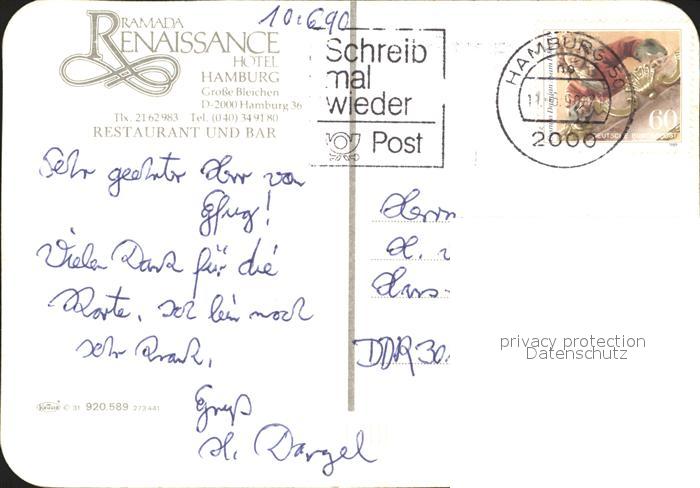 10.6.90
RAMADA
RENAISSANCE
HOTEL
HAMBURG
Große Bleichen
D-2000 Hamburg 36
Tlx. 21 62 983 Tel. (040) 34 91 80
RESTAURANT UND BAR
Schreib
mal
wieder
Post
HAMBURG
2000
60
DEUTSCHE BUNDESPOST
Sehr geehrter Herr von
Vielen Dank für die
Karte, ich bin noch
sehr krank.
Gruß
H. Dargel
Herrn
H.
Haus-
DDR 30
privacy protection
Datenschutz
Krüger © 31 920.589 273441